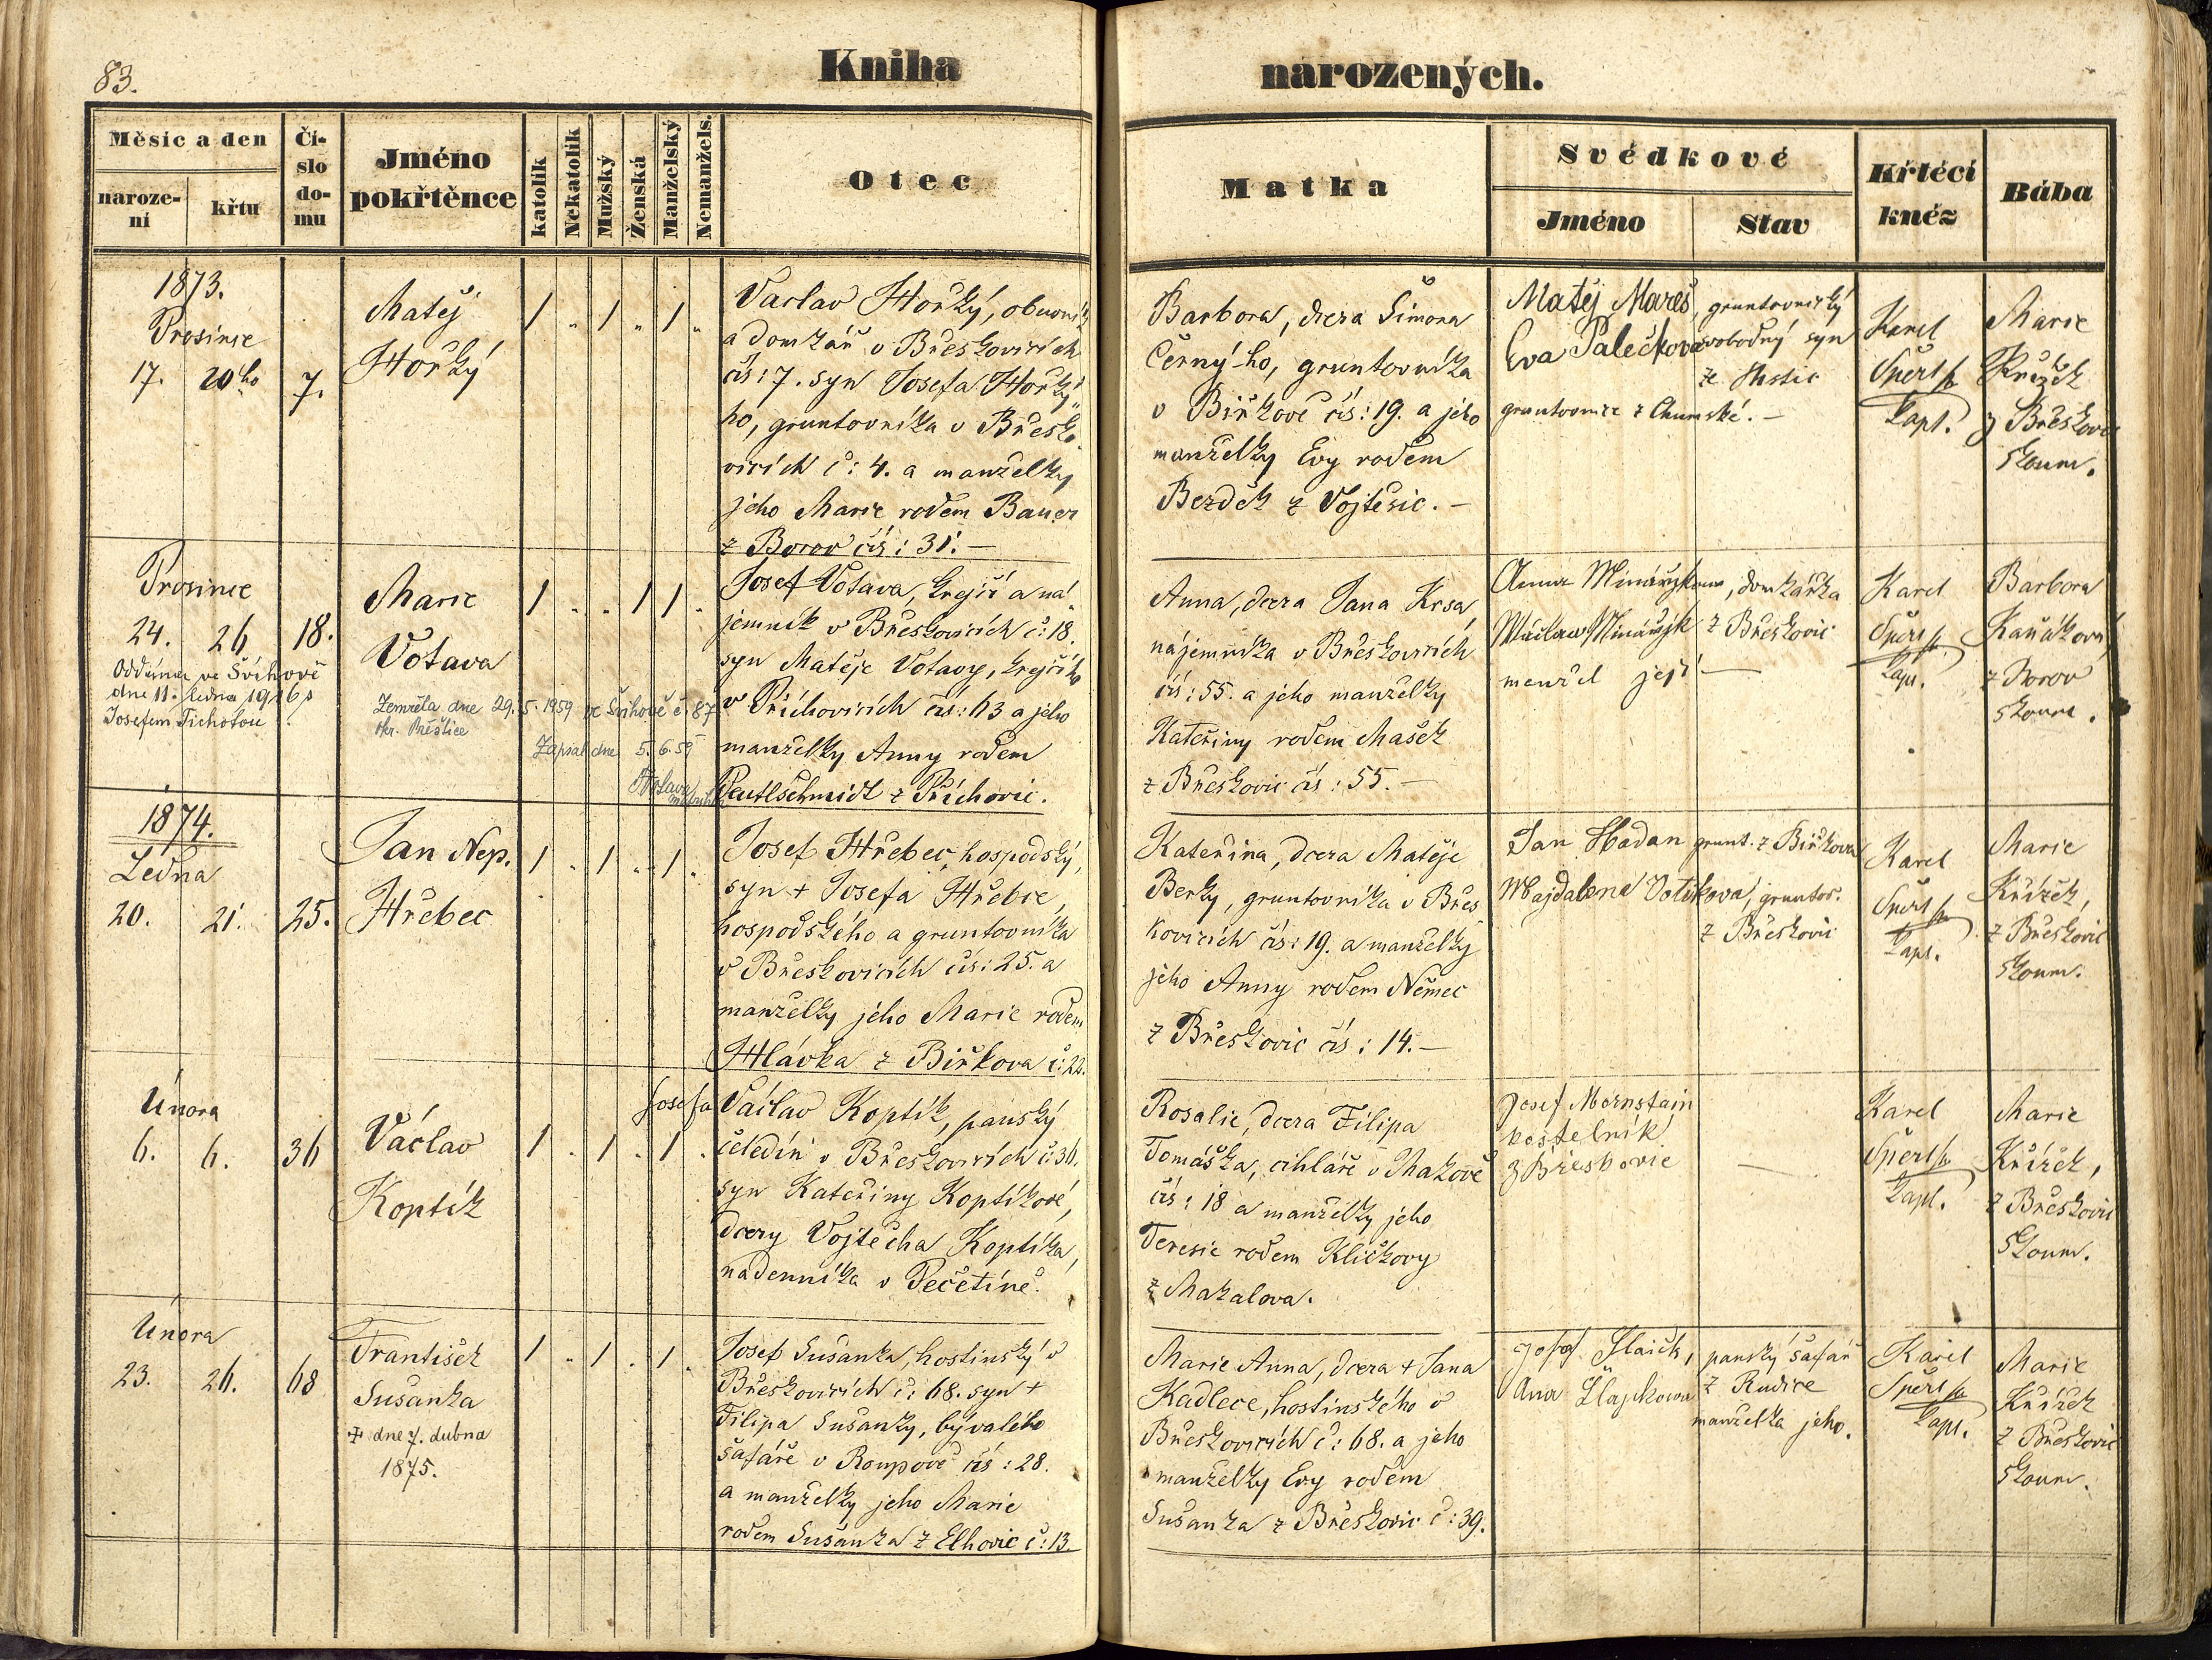 83.
Kniha narozených.
Měsíc a den
naroze-
ní
křtu
Čí-
slo
do-
mu
Jméno
pokřtěnce
katolík
Nekatolík
Mužský
Ženská
Manželský
Nemanžels.
Otec
Matka
Svědkové
Jméno
Stav
Křtécí
kněz
Bába
1873.
Prosince
17. 20ho 7.
Matěj
Hořký
1 „ 1 „ 1 „
Vaclav Hořký, obuvník
a domkář v Břeskovicích
čís: 7. syn Josefa Hořký-
ho, gruntovníka v Břesko-
vicích č: 4. a manželky
jeho Marie rodem Bauer
z Borov čís: 31. —
Barbora, dcera Šimona
Černý-ho, gruntovníka
v Biřkově čís: 19. a jeho
manželky Evy rodem
Bezděk z Vojtěšic. —
Matěj Mareš, gruntovnický
Eva Palečkova svobodný syn
ze
gruntovnice z Chumské. —
Karel
Špert
kapl.
Marie
Křížek
z Břeskovic
zkoum.
Prosince
24. 26 18.
Oddána ve Švihově
dne 11. ledna 1916
Josefem Tichotou
Marie
Votava
Zemřela dne 29. 5. 1959 ve Švihově č. 87
okr. Přeštice
Zapsal dne 5. 6. 59
1 . . 1 1 .
Josef Votava, krejčí a ná-
jemník v Břeskovicích č: 18.
syn Matěje Votavy, krejčího
v Příchovicích čís: 63 a jeho
manželky Anny rodem
Peutlschmidt z Příchovic.
Anna, dcera Jana Krsa,
nájemníka v Břeskovicích
čís: 55. a jeho manželky
Kateřiny rodem Mašek
z Břeskovic čís: 55. —
Anna Minářykova, domkářka
Václav Minářyk z Břeskovic
manžel její —
Karel
Špert
kapl.
Barbora
Kaňáková
z Borov
zkoum.
1874.
Ledna
20. 21. 25.
Jan Nep.
Hřebec
1 . 1 . 1 .
Josef Hřebec, hospodský,
syn + Josefa Hřebce,
hospodského a gruntovníka
v Břeskovicích čís: 25. a
manželky jeho Marie rodem
Hlávka z Biřkova č: 22.
Kateřina, dcera Matěje
Berky, gruntovníka v Břes
kovicích čís: 19. a manželky
jeho Anny rodem Němec
z Břeskovic čís: 14. —
Jan Hadan grunt. z Biřkova
Majdalena Votíková, gruntov.
z Břeskovic
Karel
Špert
kapl.
Marie
Křížek,
z Břeskovic
zkoum.
Února
6. 6. 36
Václav
Koptík
1 . 1 . 1 .
Josefa
Václav Koptík, panský
čeledín v Břeskovicích č: 36.
syn Kateřiny Koptíkové,
dcery Vojtěcha Koptíka,
nadenníka v Pečetíně.
Rosalie, dcera Filipa
Tomáška, cihláře v Makově
čís: 18 a manželky jeho
Teresie rodem Kličkovy
z Makalova.
Josef Mornstain
kostelník
z Břeskovic
—
Karel
Špert
kapl.
Marie
Křížek,
z Břeskovic
zkoum.
Února
23. 26. 68
František
Sušanka
+ dne 7. dubna
1875.
1 . 1 . 1 .
Josef Sušanka, hostinský v
Břeskovicích č: 68. syn +
Filipa Sušanky, bývalého
šafáře v Roupově čís: 28.
a manželky jeho Marie
rodem Sušanka z Elhovic č: 13.
Marie Anna, dcera + Jana
Kadlece, hostinského v
Břeskovicích č: 68. a jeho
manželky Evy rodem
Sušanka z Břeskovic č: 39.
panský šafář
z Rudice
manželka jeho.
Karel
Špert
kapl.
Marie
Křížek
z Břeskovic
zkoum.